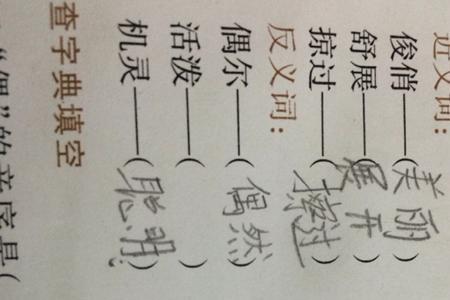 近义词：
俊俏——（美丽）
舒展——（展开）
掠过——（擦过）
反义词：
偶尔——（偶然）
活泼——（ ）
机灵——（聪明）
查字典填空
“偶”的音序是（